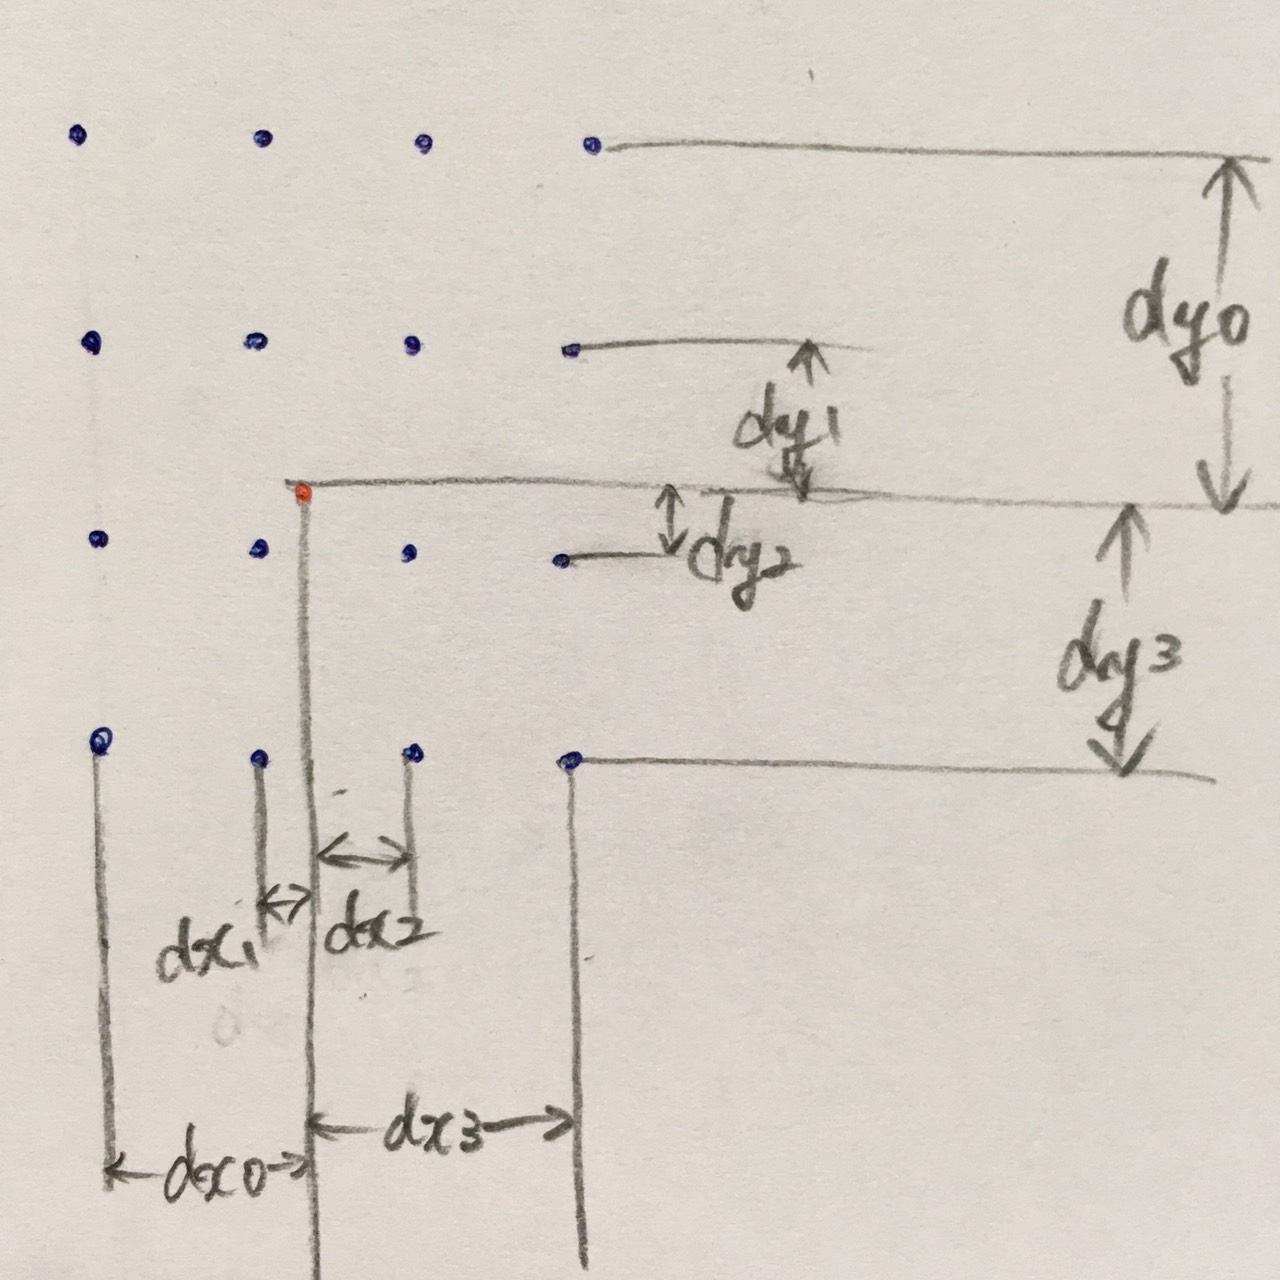 dy0
dy1
dy2
dy3
dx1
dx2
dx3
dx0